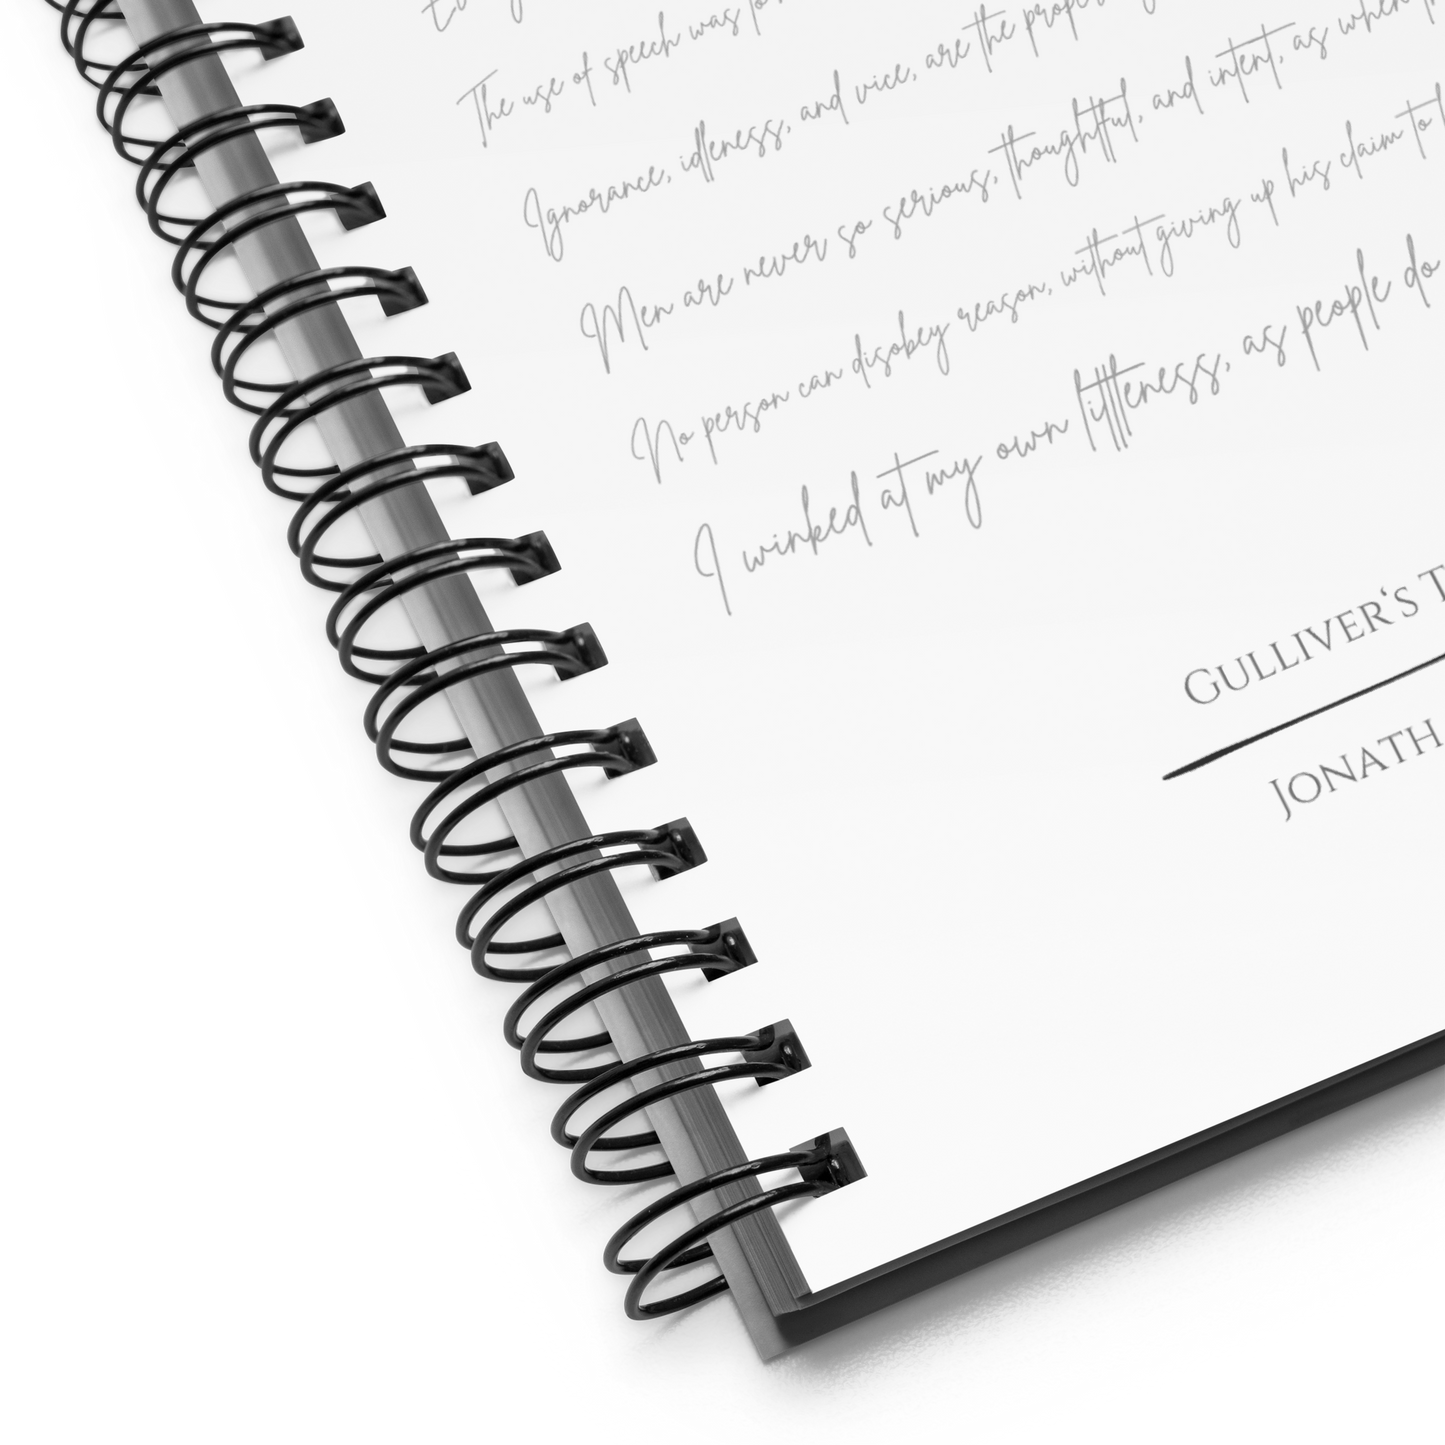 The use of speech was to
Ignorance, idleness, and vice, are the proper
Men are never so serious, thoughtful, and intent, as when
No person can disobey reason, without giving up his claim to
I winked at my own littleness, as people do
GULLIVER'S T
JONATH